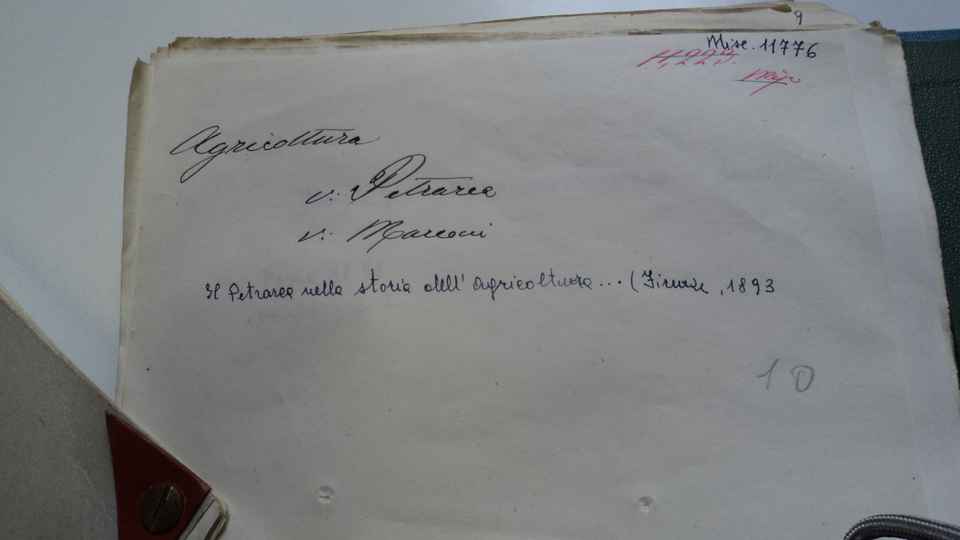 9
Misc. 11776
Agricoltura
v: Petrarca
v: Marconi
Il Petrarca nella storia dell' Agricoltura... (Firenze, 1893
10